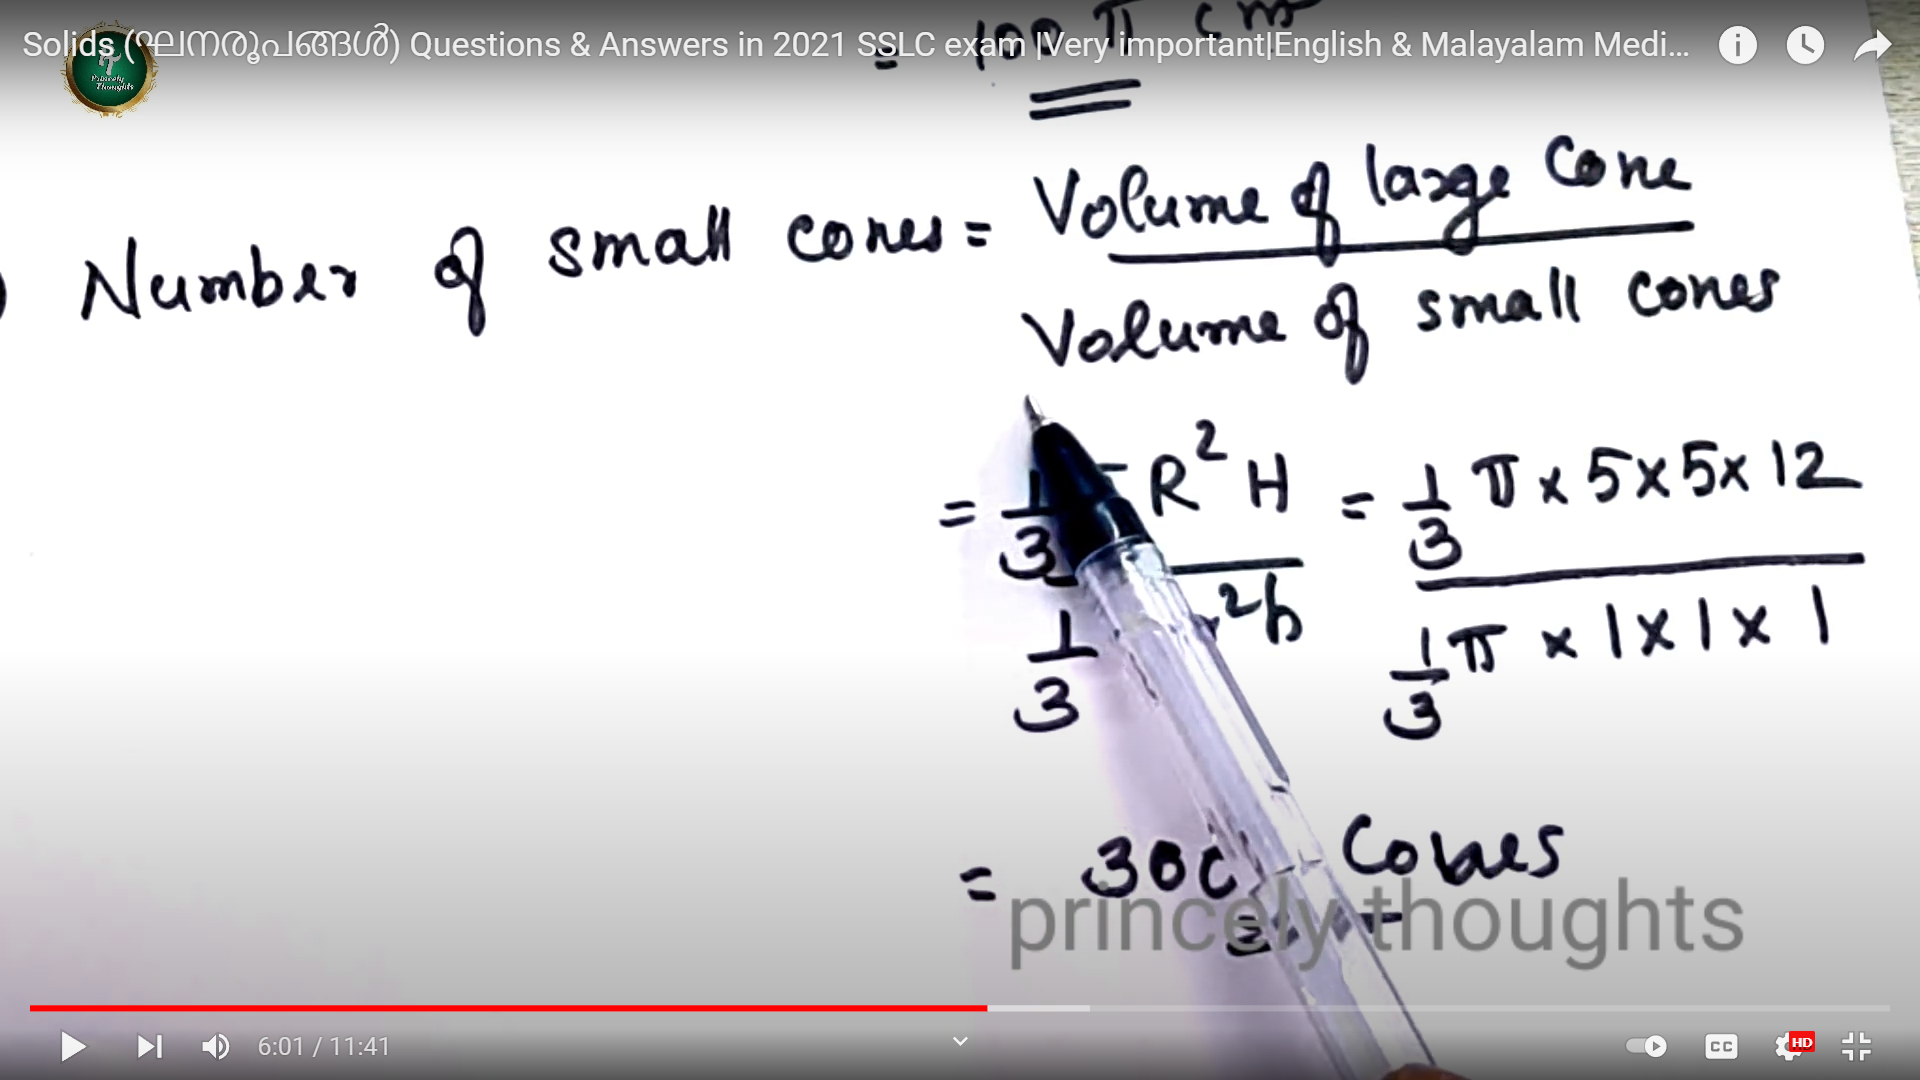 = 100 π cm
Solids (ഘനരൂപങ്ങൾ) Questions & Answers in 2021 SSLC exam |Very important|English & Malayalam Medi...
Princely
Thoughts
Number of small cones = Volume of large Cone
Volume of small cones
= 1/3 R² H = 1/3 π × 5 × 5 × 12
1/3 ²h 1/3 π × 1 × 1 × 1
= 300 Cones
princely thoughts
6:01 / 11:41
CC
HD